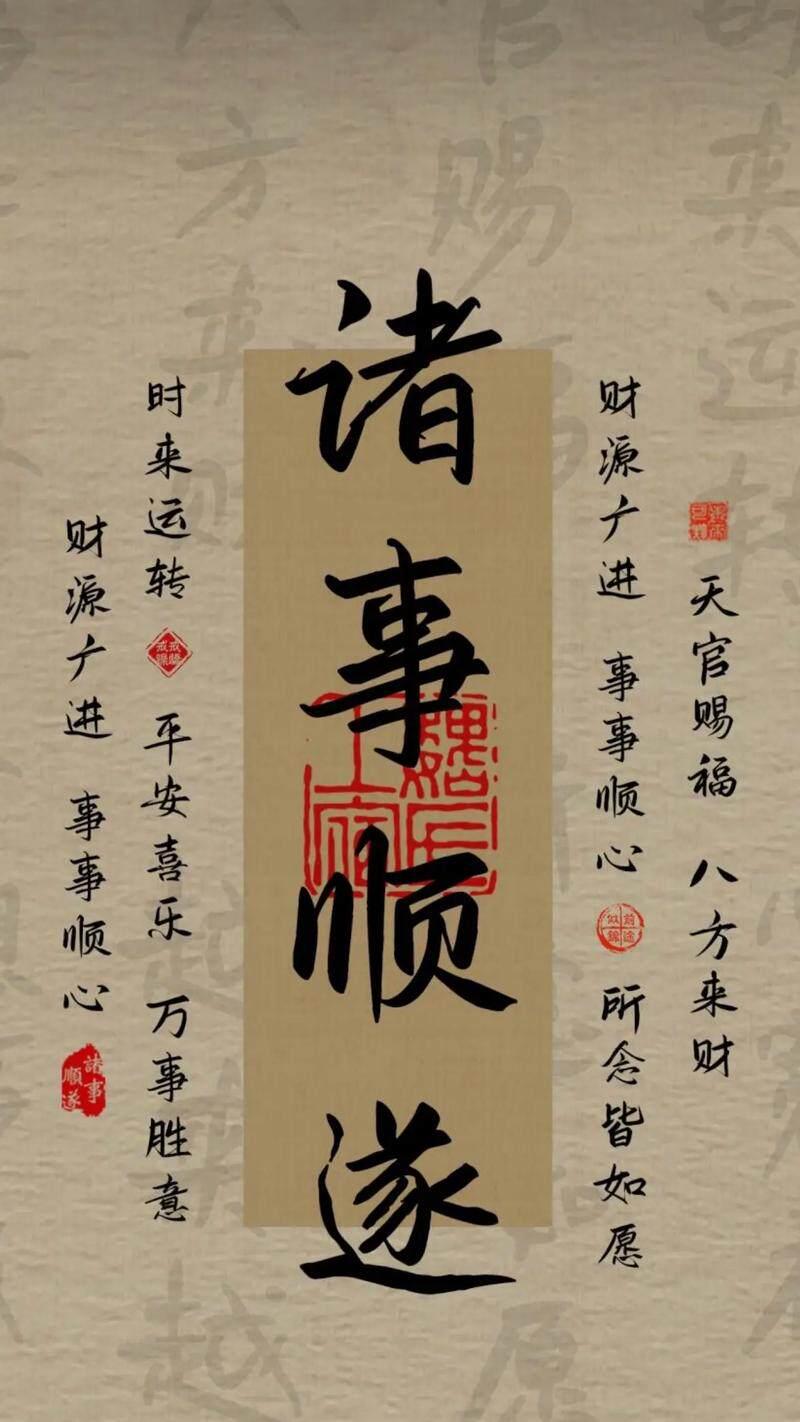 天官赐福 八方来财
财源广进 事事顺心
前途似锦
所念皆如愿
诸事顺遂
时来运转
戒骄戒躁
平安喜乐 万事胜意
财源广进 事事顺心
諸事順遂